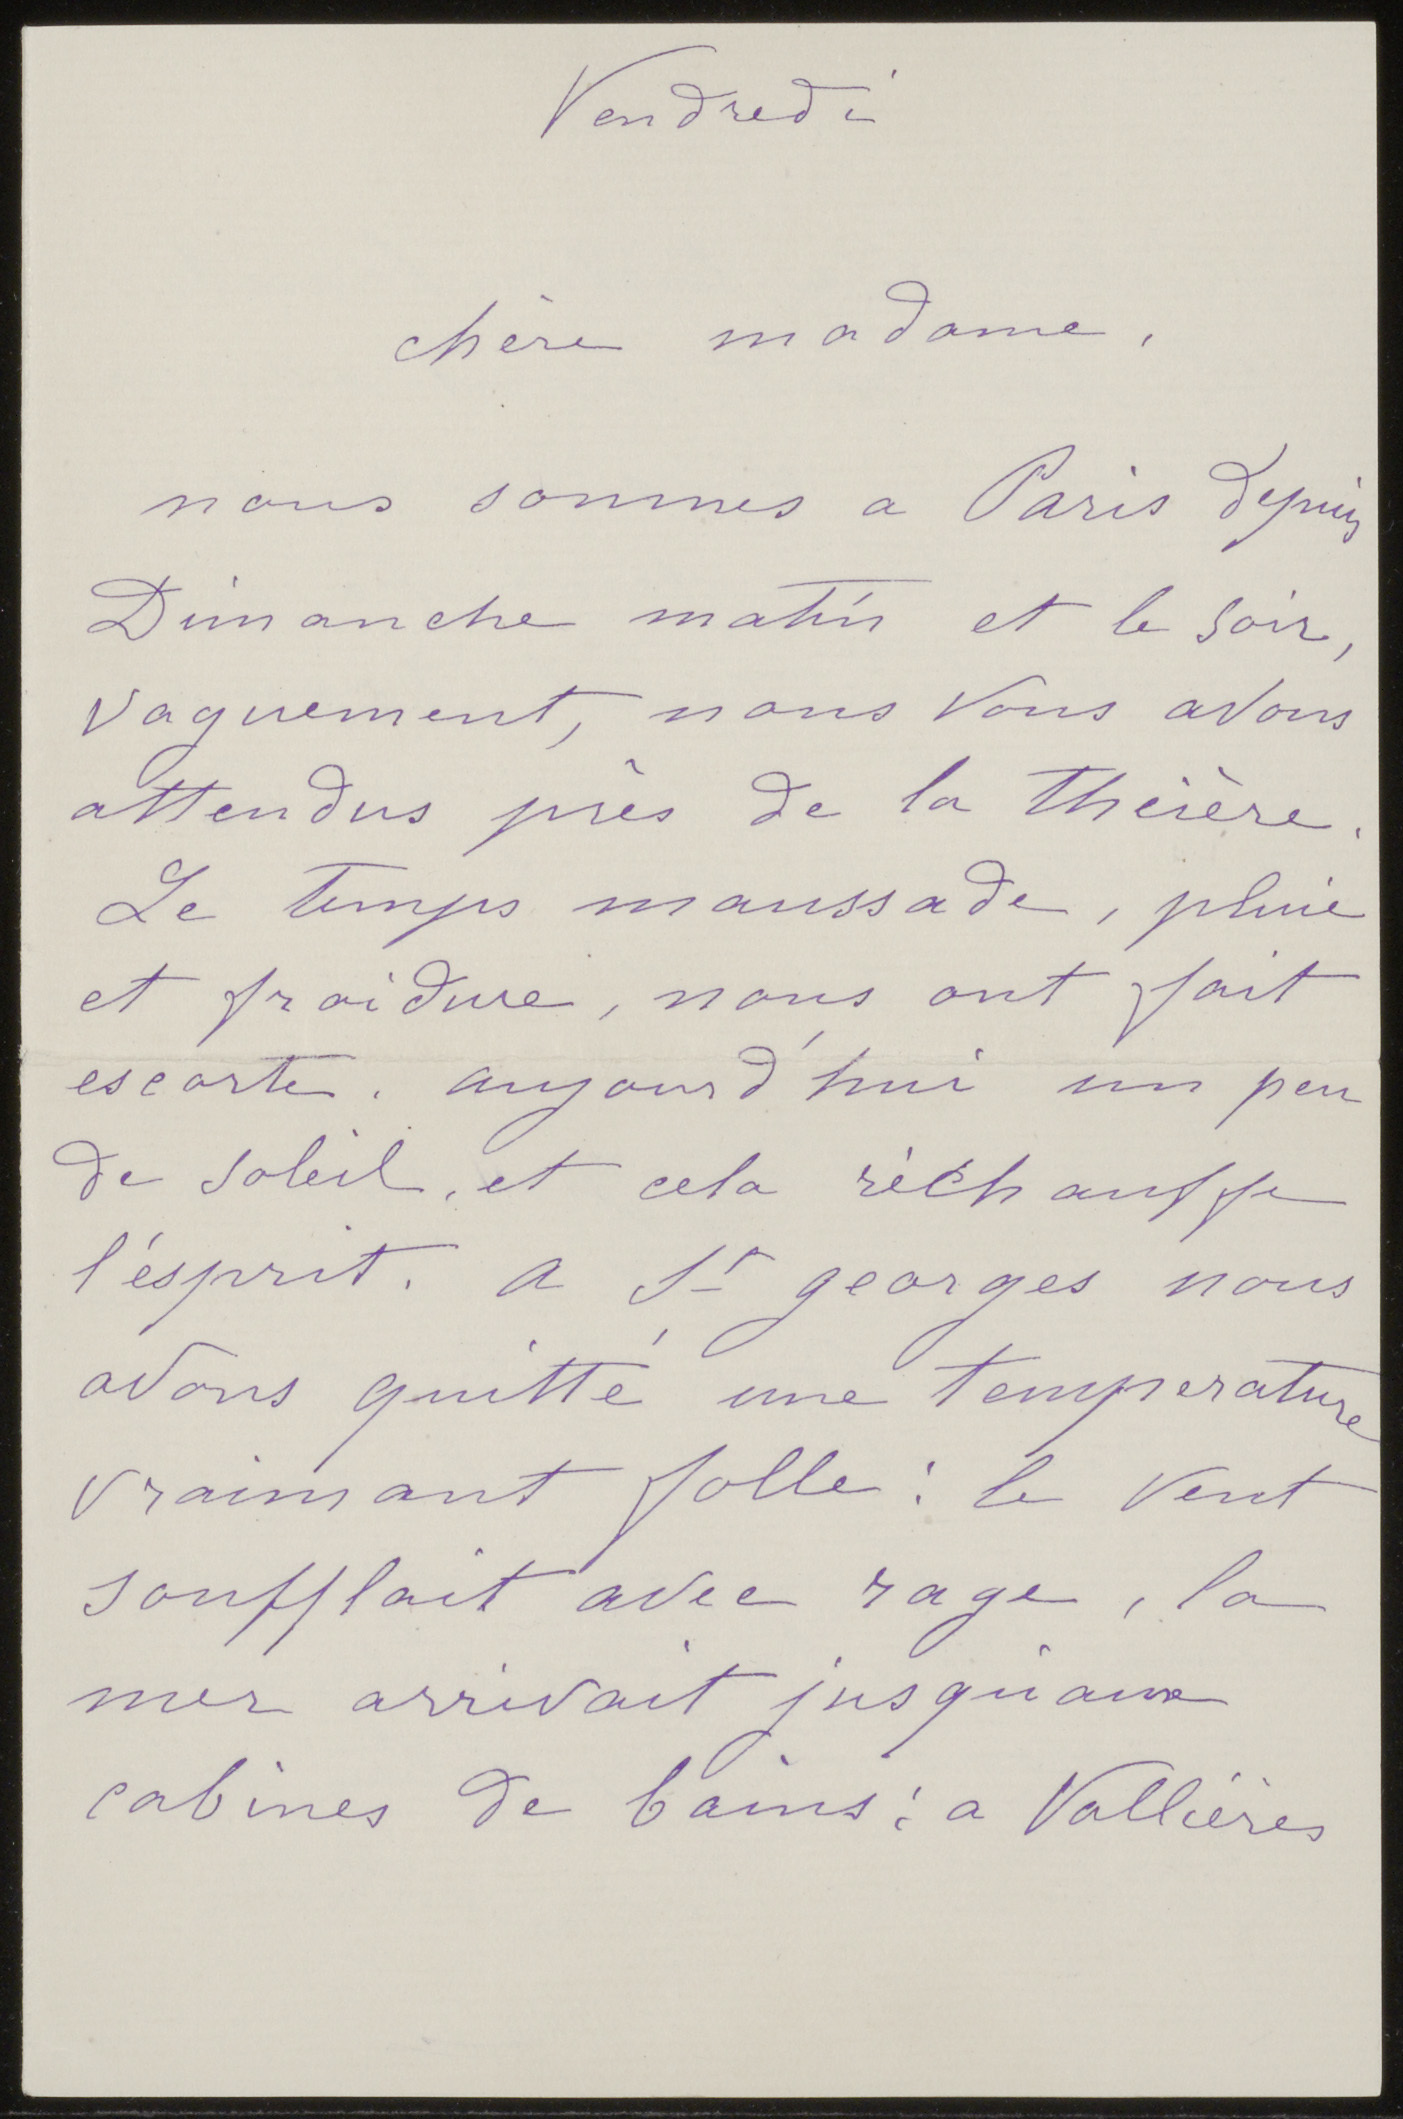 Vendredi
chère madame,
nous sommes a Paris depuis
Dimanche matin et le soir,
vaguement, nous vous avons
attendus près de la théière.
Le temps maussade, pluie
et froidure, nous ont fait
escorte. aujourd'hui un peu
de soleil, et cela réchauffe
l'ésprit. a St georges nous
avons quitté une temperature
vraimant folle : le vent
soufflait avec rage, la
mer arrivait jusqu'aux
cabines de bains : a Vallières